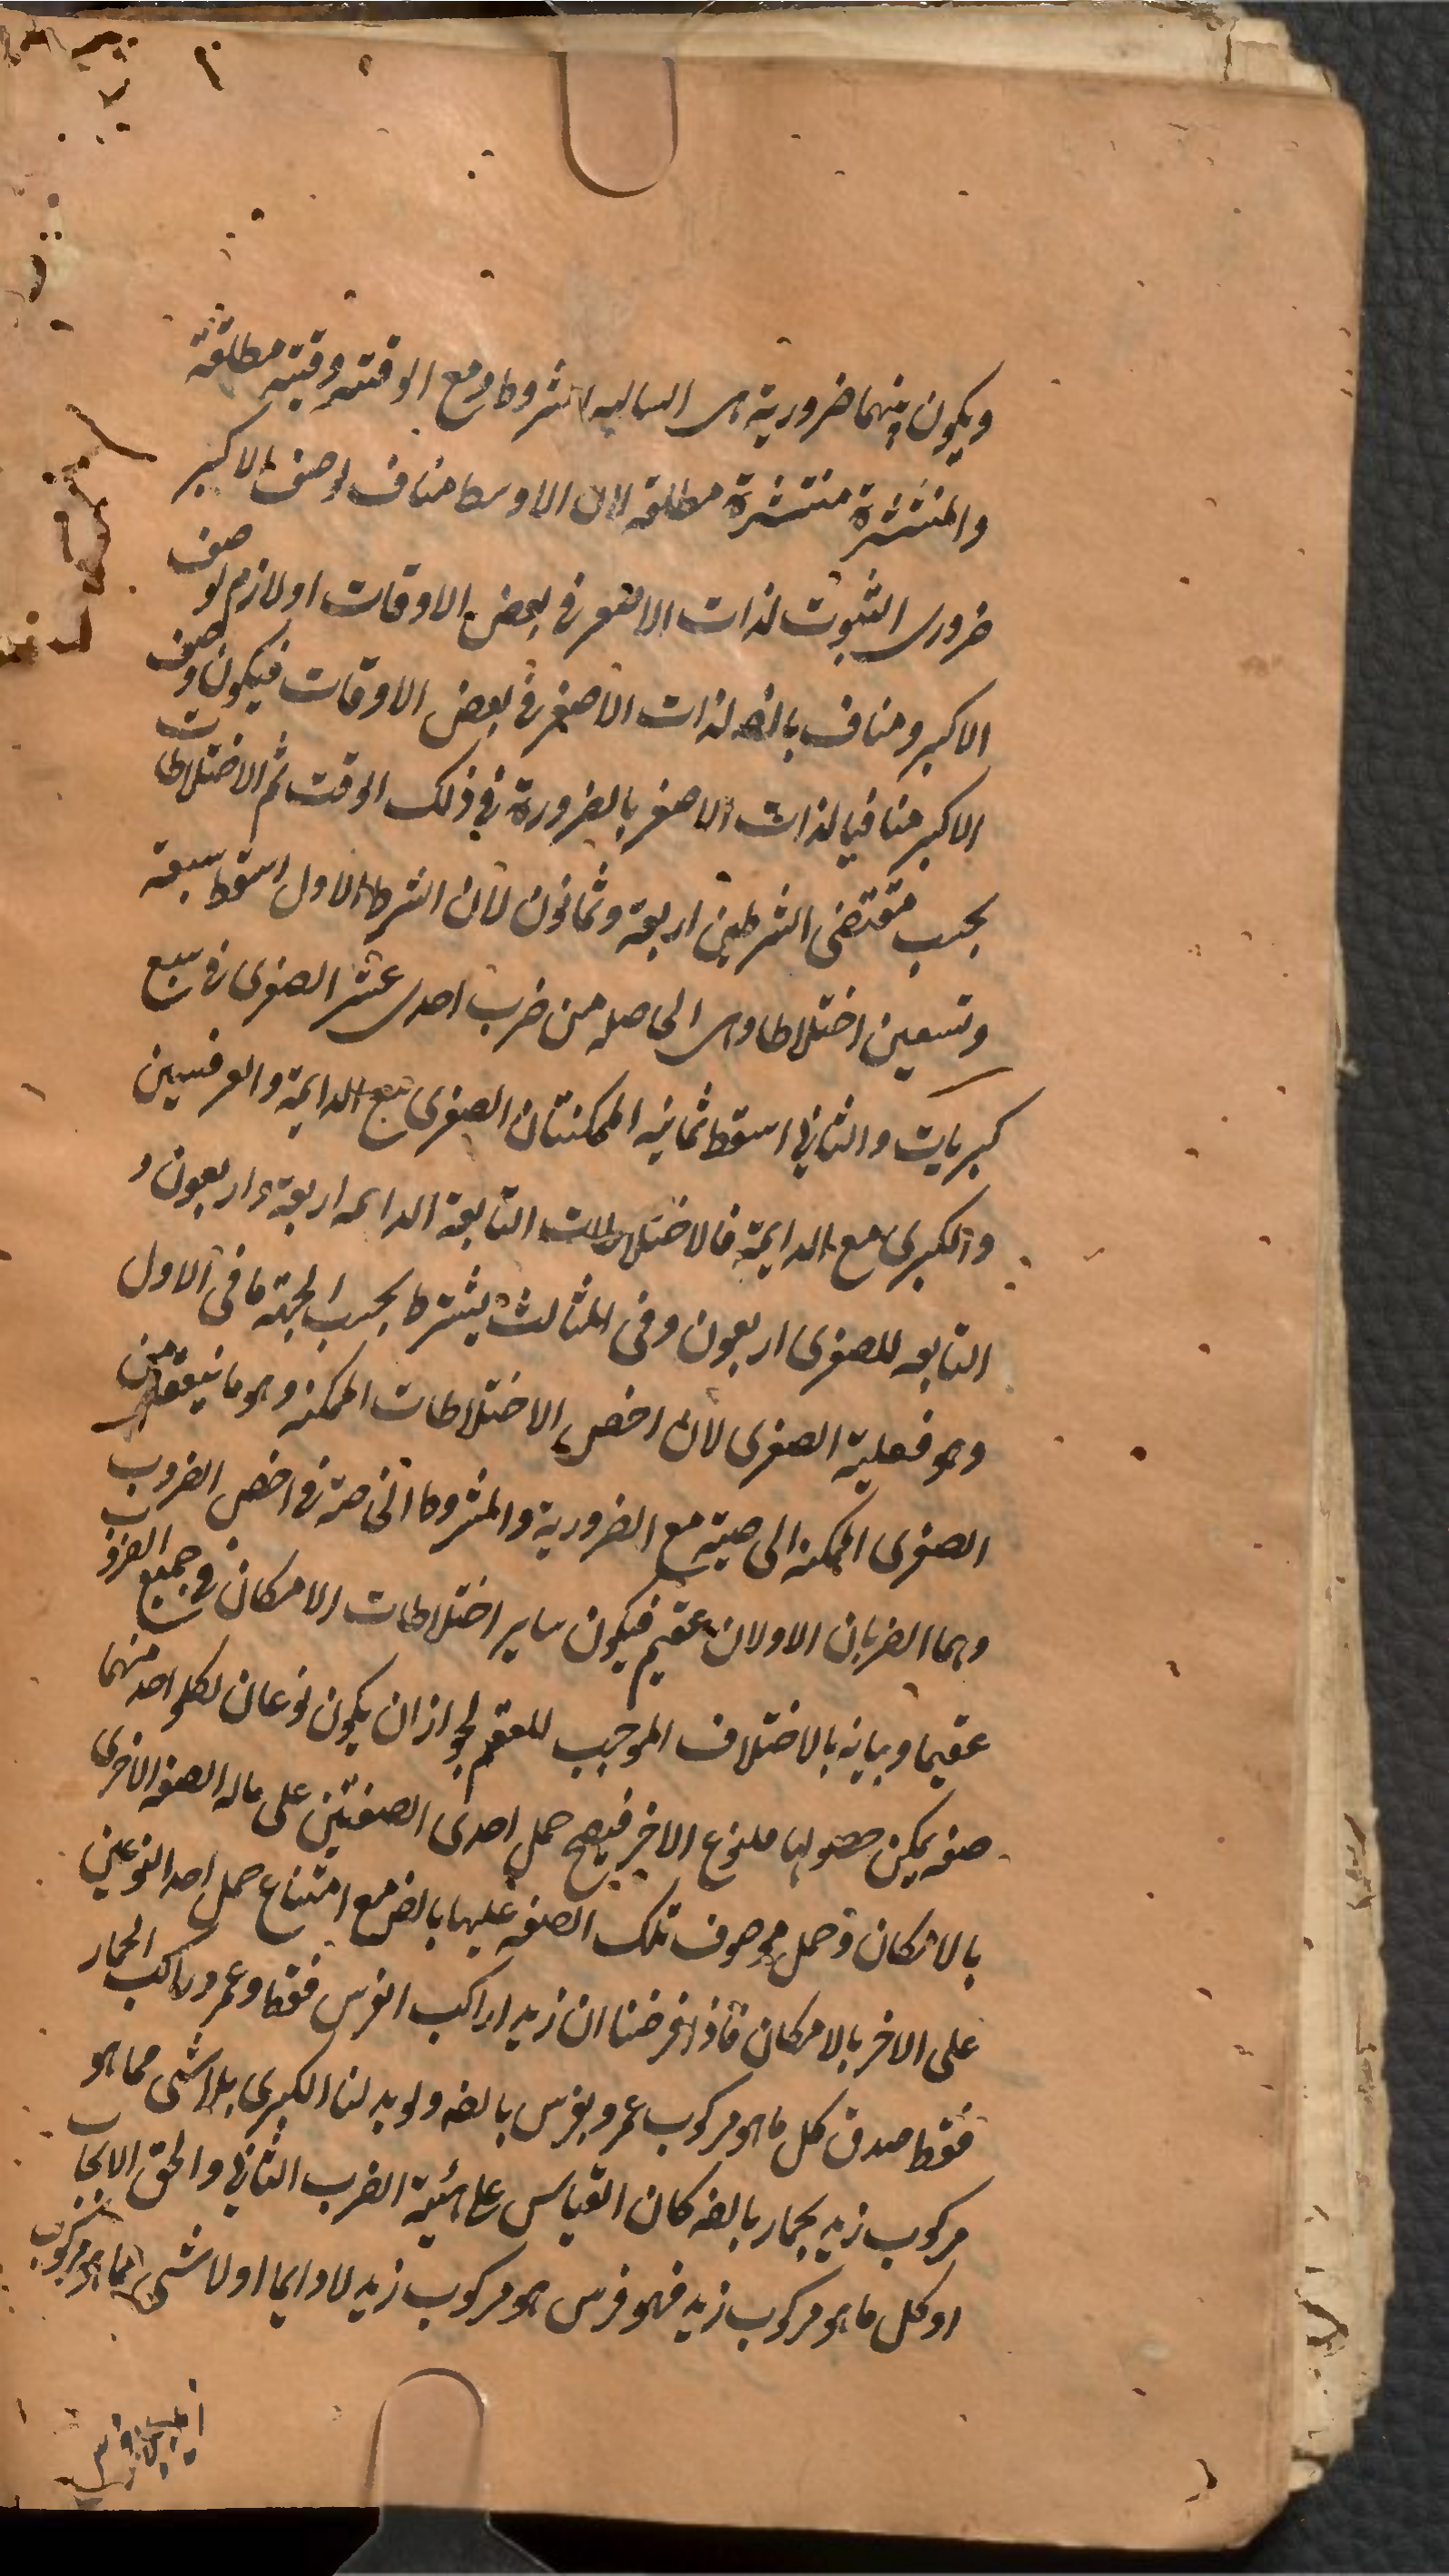 ويكون بينهما ضرورية هى السالبه المشروطة ومع الوقتيه وقتيه مطلقة
والمنتشرة منتشرة مطلقه لان الاوسط مناف لوصف الاكبر
ضرورى الثبوت لذات الاصغر فى بعض الاوقات او لازم لوصف
الاكبر ومناف بالضه لذات الاصغر فى بعض الاوقات فيكون وصف
الاكبر منافيا لذات الاصغر بالضرورة فى ذلك الوقت ثم الاختلاطات
بحسب مقتضى الشرطين اربعة وثمانون لان الشرط الاول اسقط سبعة
وتسعين اختلاطا وهى الحاصله من ضرب احدى عشر الصغرى فى سبع
كبريات والثانى اسقط ثمانيه الممكنتان الصغرى مع الدايمة والعرفيتين
والكبرى مع الدايمة فالاختلاطات التابعة الدايمه اربعة واربعون و
التابعه للصغرى اربعون وفى المثالث يشترط بحسب الجهة ما فى الاول
وهو فعلية الصغرى لان اخص الاختلاطات الممكنه وهو ما ينعقد من
الصغرى الممكنه الخاصيته مع الضرورية والمشروطة الخاصة فى اخص الضروب
وهما الضربان الاولان عقيم فيكون ساير اختلاطات الامكان فى جميع الضروب
عقيما وبيانه بالاختلاف الموجب للعقم لجواز ان يكون نوعان لكلواحد منهما
صفه يمكن حصولها للنوع الاخر فيصح حمل احدى الصفتين على ماله الصفه الاخرى
بالامكان وحمل موصوف تلك الصفه عليها بالضه مع امتناع حمل احد النوعين
على الاخر بالامكان فاذا فرضنا ان زيدا راكب الفرس فقط وعمرو راكب الحمار
فقط صدق كل ما هو مركوب عمرو بفرس بالضه ولو بدلنا الكبرى بلا شى مما هو
مركوب زيد بحمار بالضه كان القياس على هيئة الضرب الثانى والحق الايجاب
او كل ما هو مركوب زيد فهو فرس هو مركوب زيد لا دايما او لا شى مما هو مركوب